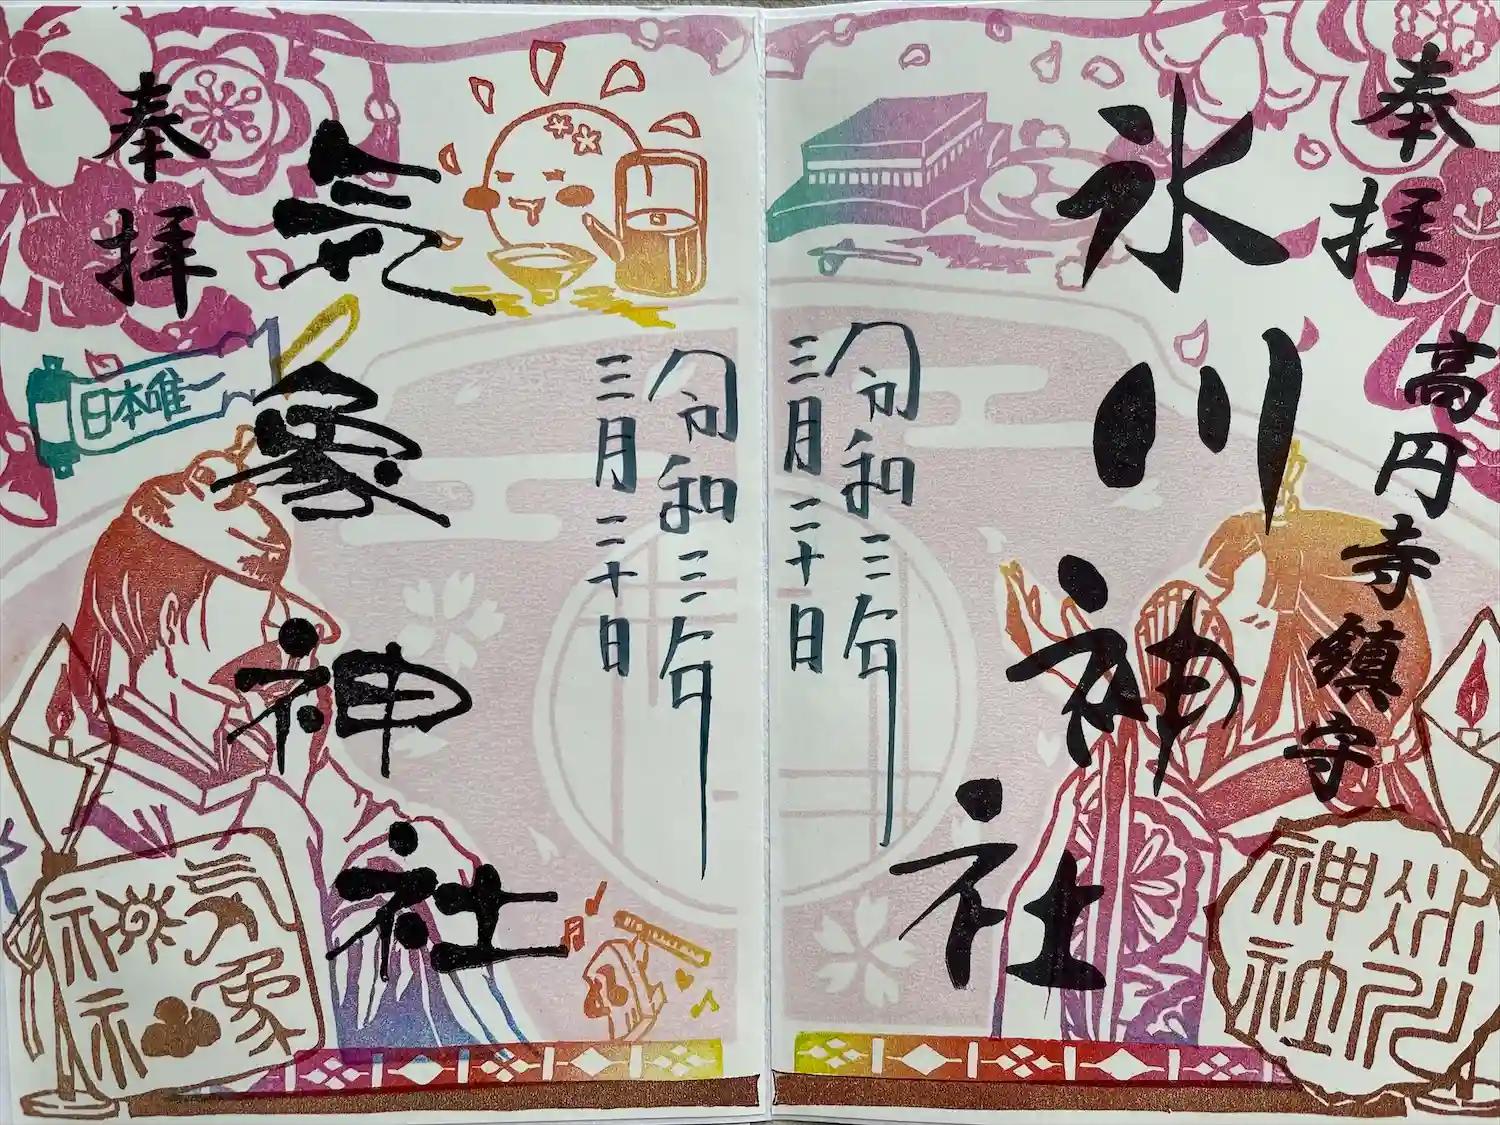 奉拝
高円寺鎮守
氷川神社
令和三年
三月二十日
氷川
神社
令和三年
三月二十日
気象神社
奉拝
日本唯一
気象
神社